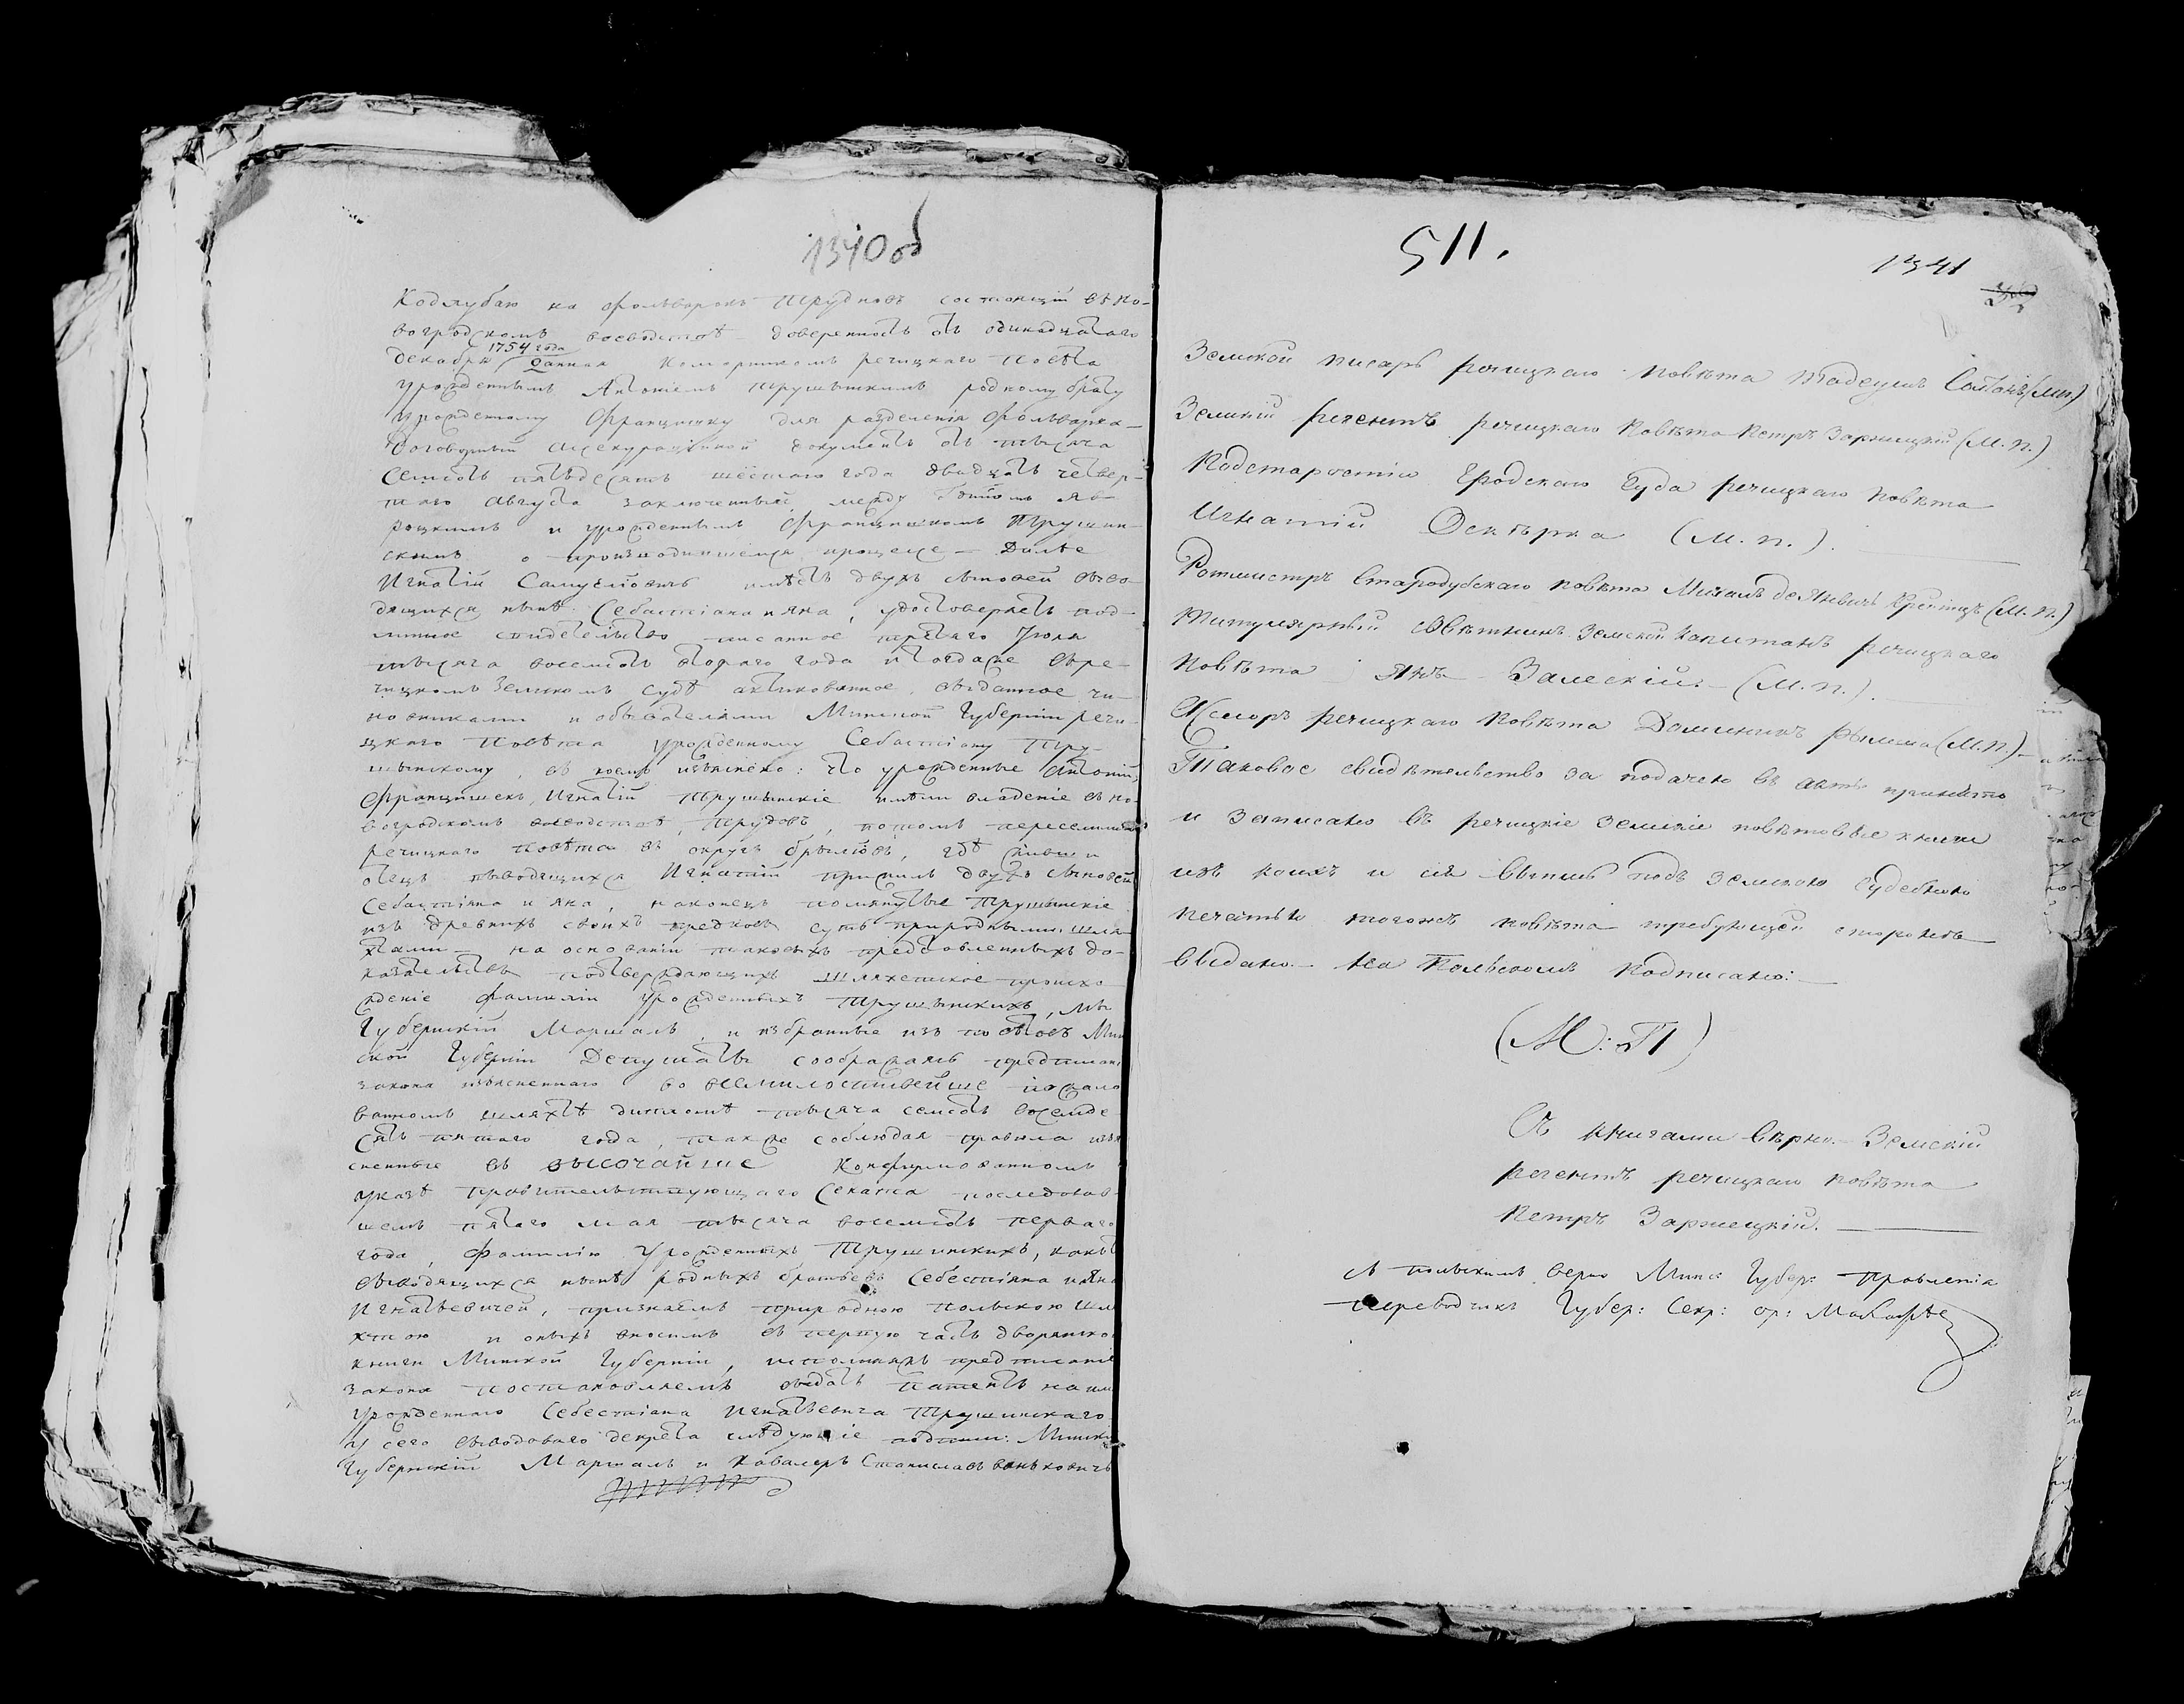 1340 об
Кодлубаю на фольварокъ Трудновъ состоящій въ но-
вогродскомъ воеводствѣ доверенность отъ одинадцатаго
1754 года
декабря данная Коморникомъ речицкаго повѣта
урожденнымъ Антоніемъ Трушынскимъ родному брату
урожденному Францишку для разделенія фольварка —
договорный ассекураціиной документъ отъ тысяча
семсотъ пятьдесятъ шестаго года двадцать четвер-
таго августа заключенный между
роцкимъ и урожденнымъ Францишкомъ Трушин-
скимъ о производившемся процессе — Далѣе
Игнатій Самуелювичъ имѣлъ двухъ сыновей выво-
дящихся нынѣ Себастіана и Яна, удостоверяетъ под-
линное свидетельство писанное перваго Июля
тысяча восемсотъ втораго года и тогдаже въ ре-
чицкомъ Земскомъ судѣ актикованное, выданное чи-
новниками и обывателями Минской Губерніи речи-
цкаго повѣта урожденному Себастіану Тру-
шынскому, въ коемъ изъяснено: что урожденные Антоній,
Францишекъ, Игнатій Трушынскіе имѣли владеніе въ но-
вогродскомъ воеводствѣ, потомъ переселились
речицкаго повѣта въ округъ брылiовъ, гдѣ живши
отецъ выводящихся Игнатій прижилъ двухъ сыновей
Себастіяна и Яна, наконецъ помянутые Трушынскіе
изъ древнихъ своихъ предковъ суть природными шля-
хтами — на основаніи таковыхъ представленныхъ до-
казательствъ подтверждающихъ шляхетское происхо-
жденіе фамиліи урожденныхъ Трушынскихъ, мы
Губернскій Маршалъ и избранные изъ повѣтовъ Мин
ской Губерніи Депутаты сообразжаясь предписані
закона изъясненнаго во всемилостивейше пожало
ванномъ шляхтѣ дипломѣ тысяча семсотъ восемде
сятъ пятаго года, также соблюдая правила изъя
сненные въ высочайше Конфирмованномъ
указѣ Правительствующаго Сената последовав-
шемъ пятаго мая тысяча восемсотъ перваго
года, фамилію Урожденныхъ Трушинскихъ, какъ
выводящихся нынѣ родныхъ братьевъ Себестіяна и Яна
Игнатьевичей, признаемъ природною польскою шля
хтою и оныхъ вносимъ въ первую часть дворянско
книги Минской Губерніи, исполняяжъ предписаніе
закона постановляемъ выдать патентъ на имя
урожденнаго Себестіана Игнатьевича Трушинскаго
у сего выводоваго декрета слѣдующіе подписи: Минскі
Губернскій Маршалъ и Кавалеръ Станиславъ Ваньковичъ
511.
1341
Земской писарь речицкаго повѣта Тадеушъ Солтанъ (М.п.)
Земскій регентъ речицкаго повѣта Петръ Заржецкій (М.п.)
Подстаростій Гродскаго Суда речицкаго повѣта
Игнатій Оскѣрка (М.п.).
Ротмистръ Стародубскаго повѣта Михалъ (М.п.)
Титулярный совѣтникъ Земской Капитанъ речицкаго
повѣта Янъ Залескій. — (М.п.).
Ассесоръ речицкаго повѣта Доминикъ (М.п.) —
Таковое свидѣтельство за подачею въ акты принято
и записано въ речицкіе земскіе повѣтовые книги
изъ коихъ и сія выпись подъ земскою судебною
печатью тогожъ повѣта требующей стороне
выдана. — На Польскомъ подписано: —
(М:П)
Съ книгами вѣрно. — Земскій
регентъ речицкаго повѣта
Петръ Заржецкій.
съ польскимъ верно Минс: Губер: Правленія
переводчикъ Губер: Секр: